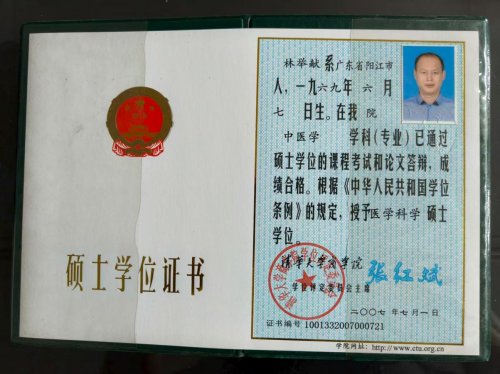 硕士学位证书
林举献 系广东省阳江市
人，一九六九年 六 月
七 日生。在我 院
中医学 学科(专业)已通过
硕士学位的课程考试和论文答辩，成
绩合格。根据《中华人民共和国学位
条例》的规定，授予医学科学 硕士
学位。
学位评定委员会主席
张红斌
二〇〇七年七月一日
证书编号 1001332007000721
学院网址：http://www.ctu.org.cn